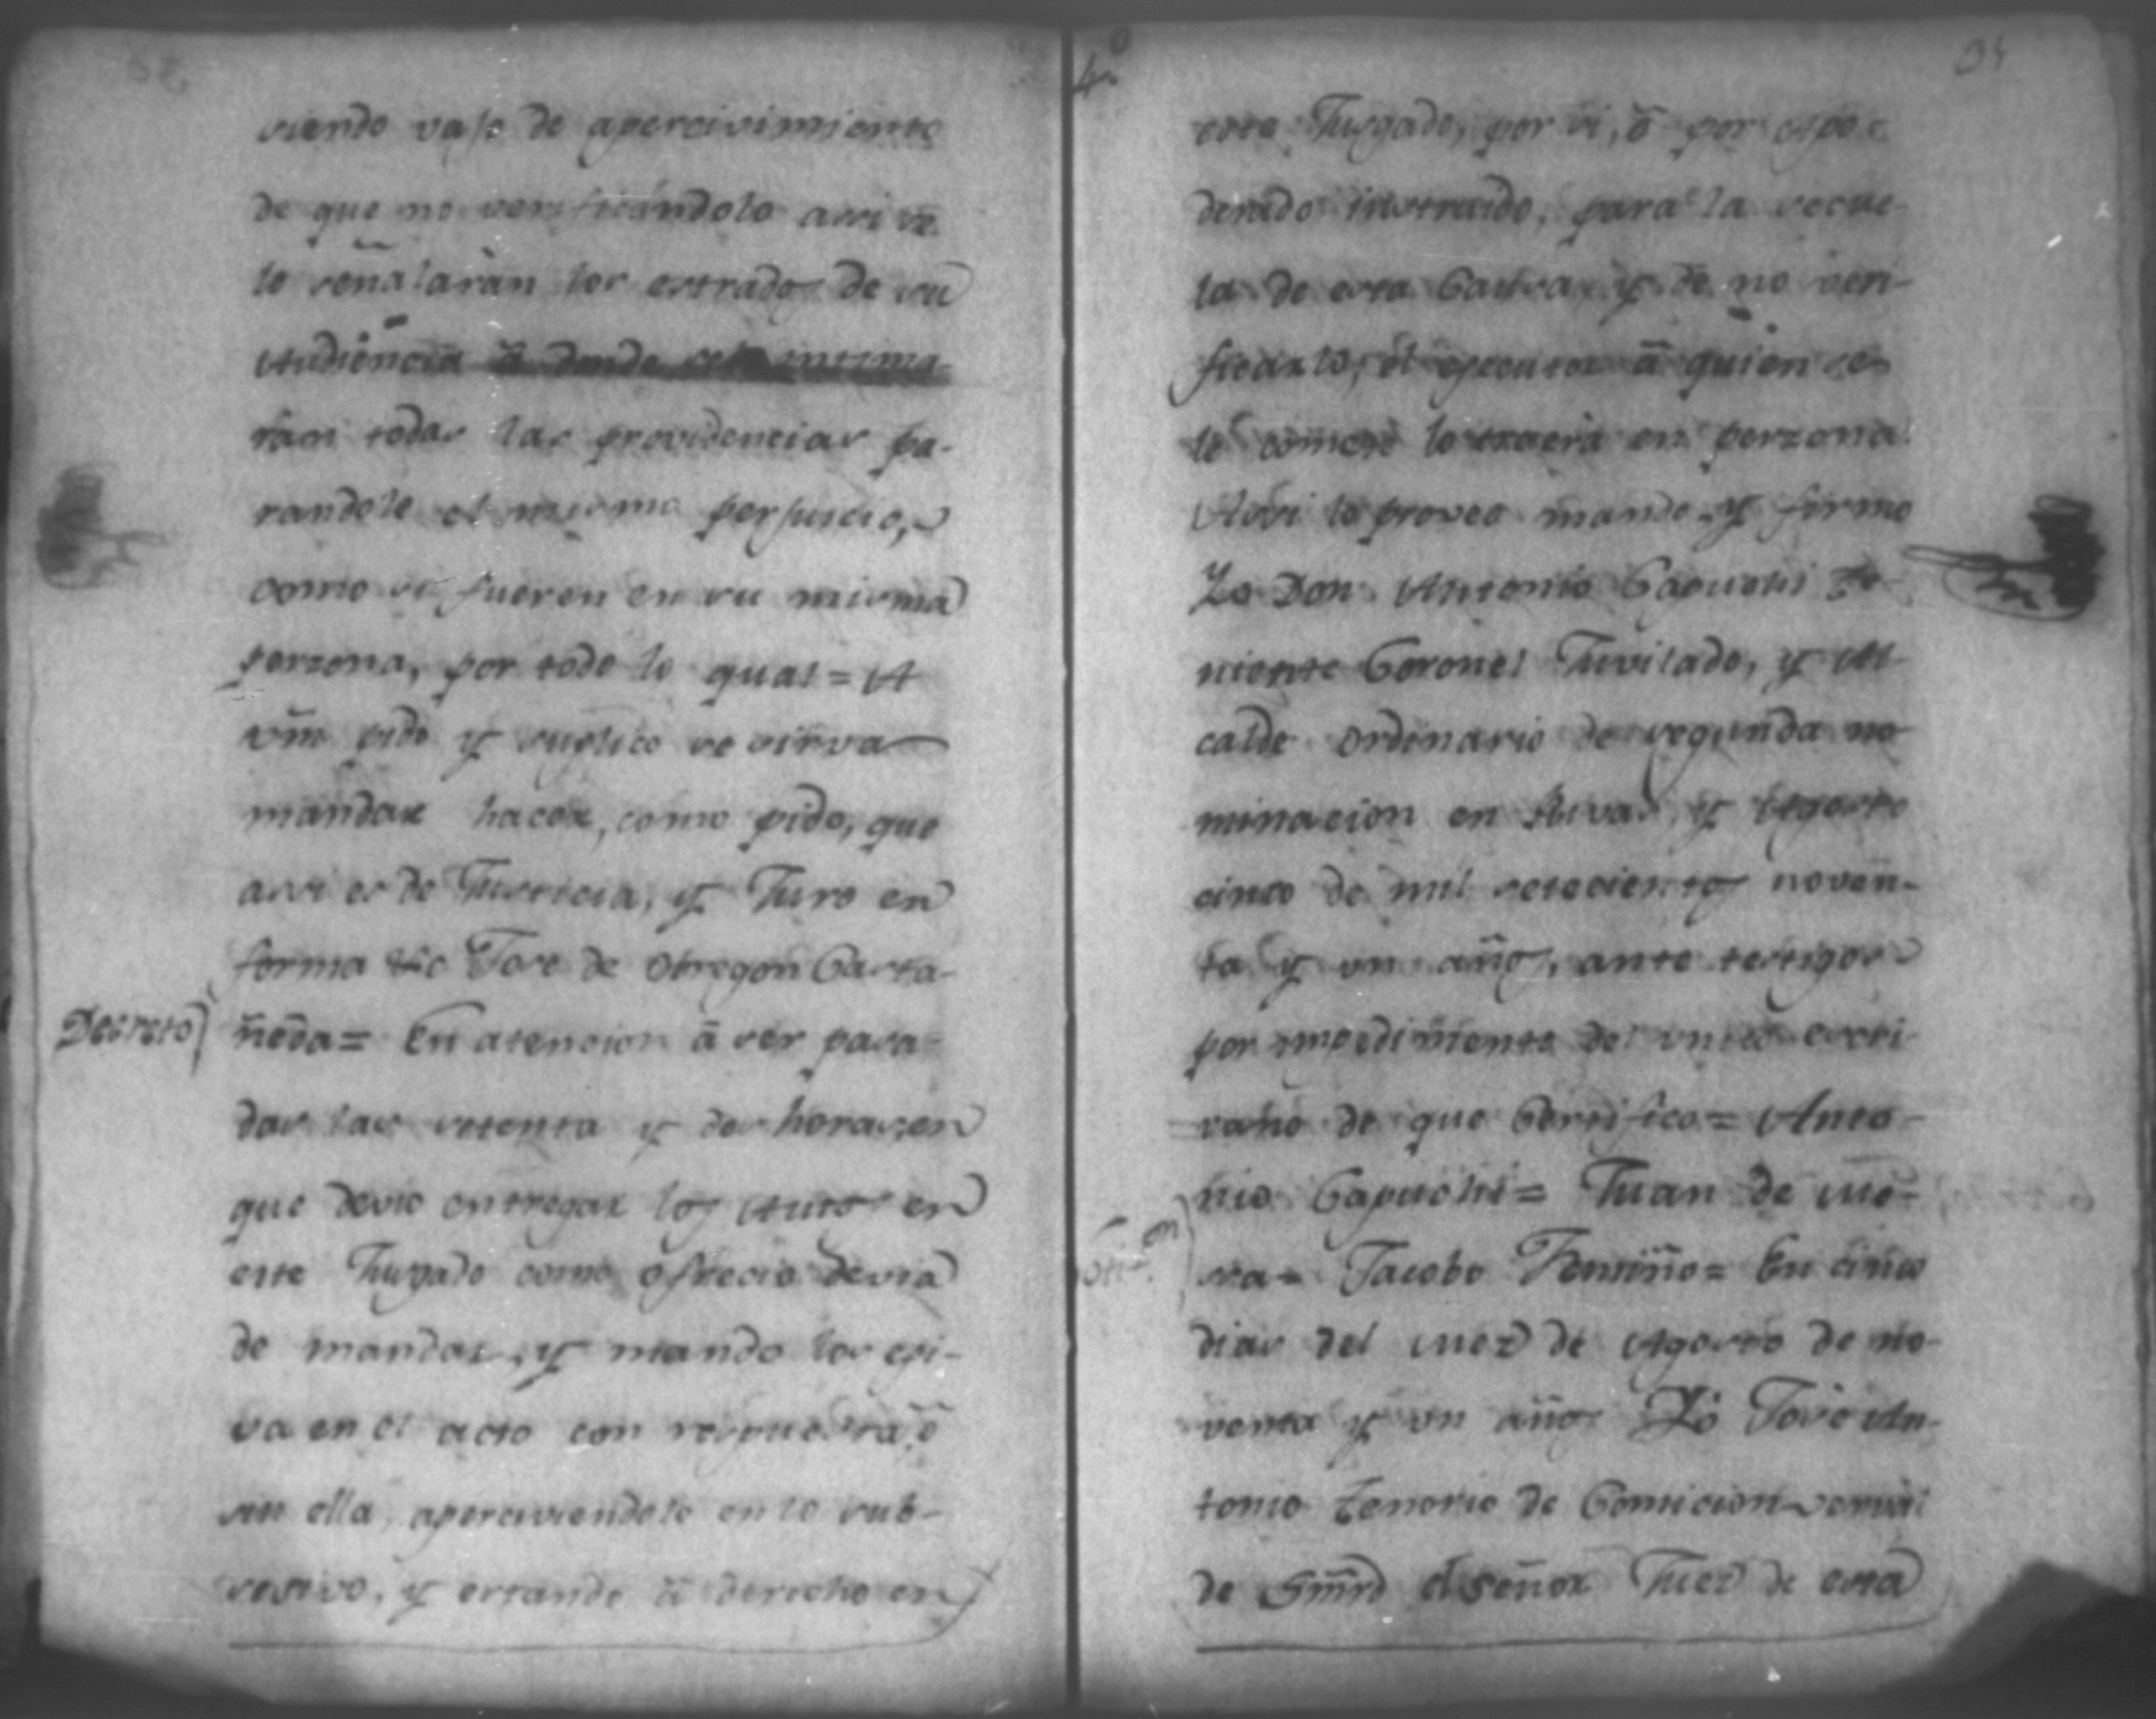 siendo vajo de apercivimiento
de que no verificándolo assi se
le señalaràn los estrados de su
Audiencia ā donde se le intima-
ran todas las providencias pa-
randole el mismo perjuicio,
como si fueren en su misma
perzona, por todo lo qual = A
vm̃ pido y suplico se sirva
mandar hacer, como pido, que
assi es de Justicia, y Juro en
forma Jose de Obregon Casta-
Decreto) ñeda = En atencion ā ser pasa-
das las setenta y dos horas, en
que devio entregar los Autos en
este Jusgado como ofrecio devia
de mandar, y mando los esi-
va en el acto con respuesta, ō
sin ella, aperciviendole en lo sub-
sesivo, y estando ā derecho en
4º
34
este Jusgado, por si, ō por apo-
derado instruido, para la secue-
la de esta Causa, y de no veri-
ficarlo, el executor ā quien se
le comete lo traerà en perzona
Assi lo proveo mando, y firmo
Yo Don Antonio Capuchi Te-
niente Coronel Juvilado, y Al-
calde ordinario de segunda no
minacion en Rivas, y Agosto
cinco de mil setecientos noven-
ta y un años, ante testigos
por impedimento del unico escri-
vano de que Certifico = Anto-
nio Capuchi = Juan de Me-
sa = Jacobo = En cinco
dias del mez de Agosto de no-
venta y un años Yo Jose An-
tonio Tenorio de Comicion verval
de Sm̃rd el señor Juez de esta